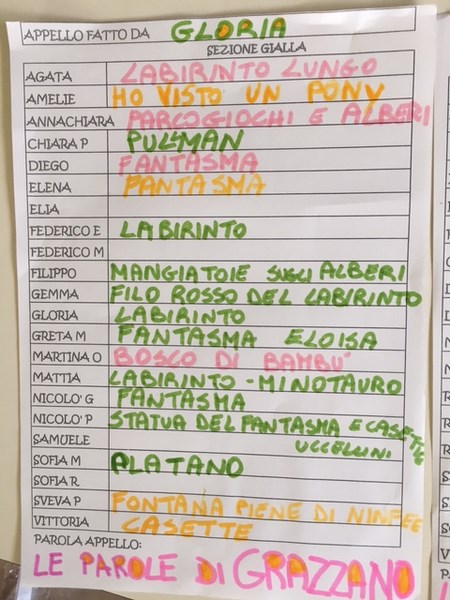 APPELLO FATTO DA GLORIA
SEZIONE GIALLA
AGATA LABIRINTO LUNGO
AMELIE HO VISTO UN PONY
ANNACHIARA PARCOGIOCHI E ALBERI
CHIARA P PULLMAN
DIEGO FANTASMA
ELENA FANTASMA
ELIA
FEDERICO E LABIRINTO
FEDERICO M
FILIPPO MANGIATOIE SUGLI ALBERI
GEMMA FILO ROSSO DEL LABIRINTO
GLORIA LABIRINTO
GRETA M FANTASMA ELOISA
MARTINA O BOSCO DI BAMBU'
MATTIA LABIRINTO - MINOTAURO
NICOLO' G FANTASMA
NICOLO' P STATUA DEL FANTASMA E CASETTE
SAMUELE UCCELLINI
SOFIA M PLATANO
SOFIA R
SVEVA P FONTANA PIENE DI NINFEE
VITTORIA CASETTE
PAROLA APPELLO:
LE PAROLE DI GRAZZANO